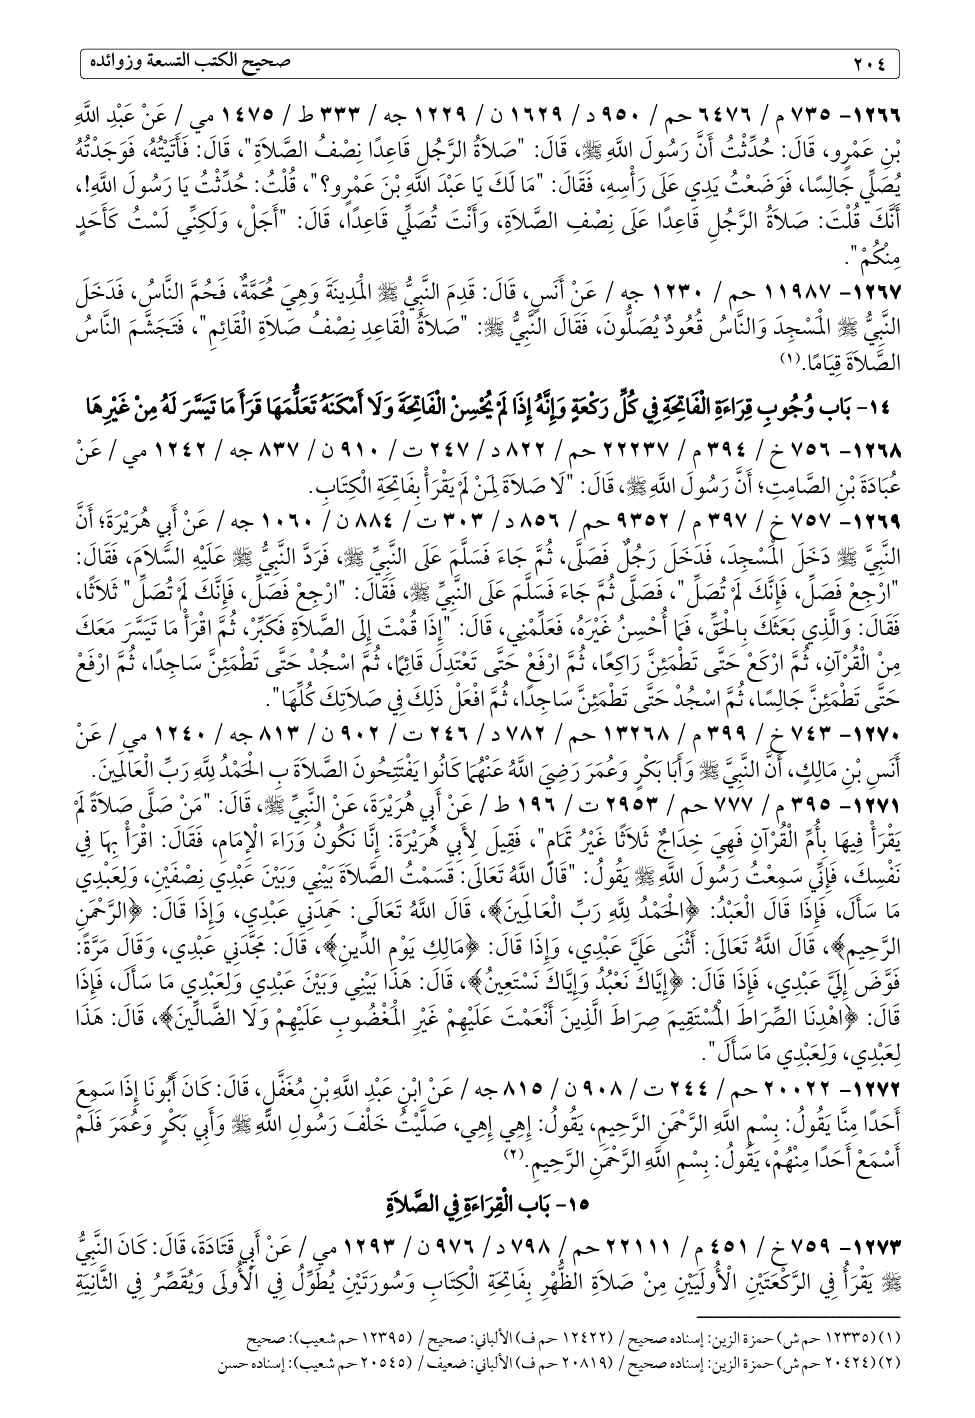 ٢٠٤ صحيح الكتب التسعة وزوائده
١٢٦٦- ٧٣٥ م/ ٦٤٧٦ حم/ ٩٥٠ د/ ١٦٢٩ ن/ ١٢٢٩ جه/ ٣٣٣ ط/ ١٤٧٥ مي/ عَنْ عَبْدِ اللَّهِ
بْنِ عَمْرٍو، قَالَ: حُدِّثْتُ أَنَّ رَسُولَ اللَّهِ ﷺ، قَالَ: "صَلاَةُ الرَّجُلِ قَاعِدًا نِصْفُ الصَّلاَةِ"، قَالَ: فَأَتَيْتُهُ، فَوَجَدْتُهُ
يُصَلِّي جَالِسًا، فَوَضَعْتُ يَدِي عَلَى رَأْسِهِ، فَقَالَ: "مَا لَكَ يَا عَبْدَ اللَّهِ بْنَ عَمْرٍو؟"، قُلْتُ: حُدِّثْتُ يَا رَسُولَ اللَّهِ!،
أَنَّكَ قُلْتَ: صَلاَةُ الرَّجُلِ قَاعِدًا عَلَى نِصْفِ الصَّلاَةِ، وَأَنْتَ تُصَلِّي قَاعِدًا، قَالَ: "أَجَلْ، وَلَكِنِّي لَسْتُ كَأَحَدٍ
مِنْكُمْ".
١٢٦٧- ١١٩٨٧ حم/ ١٢٣٠ جه/ عَنْ أَنَسٍ، قَالَ: قَدِمَ النَّبِيُّ ﷺ الْمَدِينَةَ وَهِيَ مُحَمَّةٌ، فَحُمَّ النَّاسُ، فَدَخَلَ
النَّبِيُّ ﷺ الْمَسْجِدَ وَالنَّاسُ قُعُودٌ يُصَلُّونَ، فَقَالَ النَّبِيُّ ﷺ: "صَلاَةُ الْقَاعِدِ نِصْفُ صَلاَةِ الْقَائِمِ"، فَتَجَشَّمَ النَّاسُ
الصَّلاَةَ قِيَامًا.(١)
١٤- بَاب وُجُوبِ قِرَاءَةِ الْفَاتِحَةِ فِي كُلِّ رَكْعَةٍ وَإِنَّهُ إِذَا لَمْ يُحْسِنْ الْفَاتِحَةَ وَلَا أَمْكَنَهُ تَعَلُّمَهَا قَرَأَ مَا تَيَسَّرَ لَهُ مِنْ غَيْرِهَا
١٢٦٨- ٧٥٦ خ/ ٣٩٤ م/ ٢٢٢٣٧ حم/ ٨٢٢ د/ ٢٤٧ ت/ ٩١٠ ن/ ٨٣٧ جه/ ١٢٤٢ مي/ عَنْ
عُبَادَةَ بْنِ الصَّامِتِ؛ أَنَّ رَسُولَ اللَّهِ ﷺ، قَالَ: "لَا صَلاَةَ لِمَنْ لَمْ يَقْرَأْ بِفَاتِحَةِ الْكِتَابِ.
١٢٦٩- ٧٥٧ خ/ ٣٩٧ م/ ٩٣٥٢ حم/ ٨٥٦ د/ ٣٠٣ ت/ ٨٨٤ ن/ ١٠٦٠ جه/ عَنْ أَبِي هُرَيْرَةَ؛ أَنَّ
النَّبِيَّ ﷺ دَخَلَ الْمَسْجِدَ، فَدَخَلَ رَجُلٌ فَصَلَّى، ثُمَّ جَاءَ فَسَلَّمَ عَلَى النَّبِيِّ ﷺ، فَرَدَّ النَّبِيُّ ﷺ عَلَيْهِ السَّلاَمَ، فَقَالَ:
"ارْجِعْ فَصَلِّ، فَإِنَّكَ لَمْ تُصَلِّ"، فَصَلَّى ثُمَّ جَاءَ فَسَلَّمَ عَلَى النَّبِيِّ ﷺ، فَقَالَ: "ارْجِعْ فَصَلِّ، فَإِنَّكَ لَمْ تُصَلِّ" ثَلاَثًا،
فَقَالَ: وَالَّذِي بَعَثَكَ بِالْحَقِّ، فَمَا أُحْسِنُ غَيْرَهُ، فَعَلِّمْنِي، قَالَ: "إِذَا قُمْتَ إِلَى الصَّلاَةِ فَكَبِّرْ، ثُمَّ اقْرَأْ مَا تَيَسَّرَ مَعَكَ
مِنْ الْقُرْآنِ، ثُمَّ ارْكَعْ حَتَّى تَطْمَئِنَّ رَاكِعًا، ثُمَّ ارْفَعْ حَتَّى تَعْتَدِلَ قَائِمًا، ثُمَّ اسْجُدْ حَتَّى تَطْمَئِنَّ سَاجِدًا، ثُمَّ ارْفَعْ
حَتَّى تَطْمَئِنَّ جَالِسًا، ثُمَّ اسْجُدْ حَتَّى تَطْمَئِنَّ سَاجِدًا، ثُمَّ افْعَلْ ذَلِكَ فِي صَلاَتِكَ كُلِّهَا".
١٢٧٠- ٧٤٣ خ/ ٣٩٩ م/ ١٣٢٦٨ حم/ ٧٨٢ د/ ٢٤٦ ت/ ٩٠٢ ن/ ٨١٣ جه/ ١٢٤٠ مي/ عَنْ
أَنَسِ بْنِ مَالِكٍ، أَنَّ النَّبِيَّ ﷺ وَأَبَا بَكْرٍ وَعُمَرَ رَضِيَ اللَّهُ عَنْهُمَا كَانُوا يَفْتَتِحُونَ الصَّلاَةَ بِ الْحَمْدُ لِلَّهِ رَبِّ الْعَالَمِينَ.
١٢٧١- ٣٩٥ م/ ٧٧٧ حم/ ٢٩٥٣ ت/ ١٩٦ ط/ عَنْ أَبِي هُرَيْرَةَ، عَنْ النَّبِيِّ ﷺ، قَالَ: "مَنْ صَلَّى صَلاَةً لَمْ
يَقْرَأْ فِيهَا بِأُمِّ الْقُرْآنِ فَهِيَ خِدَاجٌ ثَلاَثًا غَيْرُ تَمَامٍ"، فَقِيلَ لِأَبِي هُرَيْرَةَ: إِنَّا نَكُونُ وَرَاءَ الْإِمَامِ، فَقَالَ: اقْرَأْ بِهَا فِي
نَفْسِكَ، فَإِنِّي سَمِعْتُ رَسُولَ اللَّهِ ﷺ يَقُولُ: "قَالَ اللَّهُ تَعَالَى: قَسَمْتُ الصَّلاَةَ بَيْنِي وَبَيْنَ عَبْدِي نِصْفَيْنِ، وَلِعَبْدِي
مَا سَأَلَ، فَإِذَا قَالَ الْعَبْدُ: ﴿الْحَمْدُ لِلَّهِ رَبِّ الْعَالَمِينَ﴾، قَالَ اللَّهُ تَعَالَى: حَمِدَنِي عَبْدِي، وَإِذَا قَالَ: ﴿الرَّحْمَنِ
الرَّحِيمِ﴾، قَالَ اللَّهُ تَعَالَى: أَثْنَى عَلَيَّ عَبْدِي، وَإِذَا قَالَ: ﴿مَالِكِ يَوْمِ الدِّينِ﴾، قَالَ: مَجَّدَنِي عَبْدِي، وَقَالَ مَرَّةً:
فَوَّضَ إِلَيَّ عَبْدِي، فَإِذَا قَالَ: ﴿إِيَّاكَ نَعْبُدُ وَإِيَّاكَ نَسْتَعِينُ﴾، قَالَ: هَذَا بَيْنِي وَبَيْنَ عَبْدِي وَلِعَبْدِي مَا سَأَلَ، فَإِذَا
قَالَ: ﴿اهْدِنَا الصِّرَاطَ الْمُسْتَقِيمَ صِرَاطَ الَّذِينَ أَنْعَمْتَ عَلَيْهِمْ غَيْرِ الْمَغْضُوبِ عَلَيْهِمْ وَلَا الضَّالِّينَ﴾، قَالَ: هَذَا
لِعَبْدِي، وَلِعَبْدِي مَا سَأَلَ".
١٢٧٢- ٢٠٠٢٢ حم/ ٢٤٤ ت/ ٩٠٨ ن/ ٨١٥ جه/ عَنْ ابْنِ عَبْدِ اللَّهِ بْنِ مُغَفَّلٍ، قَالَ: كَانَ أَبُونَا إِذَا سَمِعَ
أَحَدًا مِنَّا يَقُولُ: بِسْمِ اللَّهِ الرَّحْمَنِ الرَّحِيمِ، يَقُولُ: إِهِي إِهِي، صَلَّيْتُ خَلْفَ رَسُولِ اللَّهِ ﷺ وَأَبِي بَكْرٍ وَعُمَرَ فَلَمْ
أَسْمَعْ أَحَدًا مِنْهُمْ، يَقُولُ: بِسْمِ اللَّهِ الرَّحْمَنِ الرَّحِيمِ.(٢)
١٥- بَاب الْقِرَاءَةِ فِي الصَّلاَةِ
١٢٧٣- ٧٥٩ خ/ ٤٥١ م/ ٢٢١١١ حم/ ٧٩٨ د/ ٩٧٦ ن/ ١٢٩٣ مي/ عَنْ أَبِي قَتَادَةَ، قَالَ: كَانَ النَّبِيُّ
ﷺ يَقْرَأُ فِي الرَّكْعَتَيْنِ الْأُولَيَيْنِ مِنْ صَلاَةِ الظُّهْرِ بِفَاتِحَةِ الْكِتَابِ وَسُورَتَيْنِ يُطَوِّلُ فِي الْأُولَى وَيُقَصِّرُ فِي الثَّانِيَةِ
(١) (١٢٣٣٥ حم ش) حمزة الزين: إسناده صحيح/ (١٢٤٢٢ حم ف) الألباني: صحيح/ (١٢٣٩٥ حم شعيب): صحيح
(٢) (٢٠٤٢٤ حم ش) حمزة الزين: إسناده صحيح/ (٢٠٨١٩ حم ف) الألباني: ضعيف/ (٢٠٥٤٥ حم شعيب): إسناده حسن